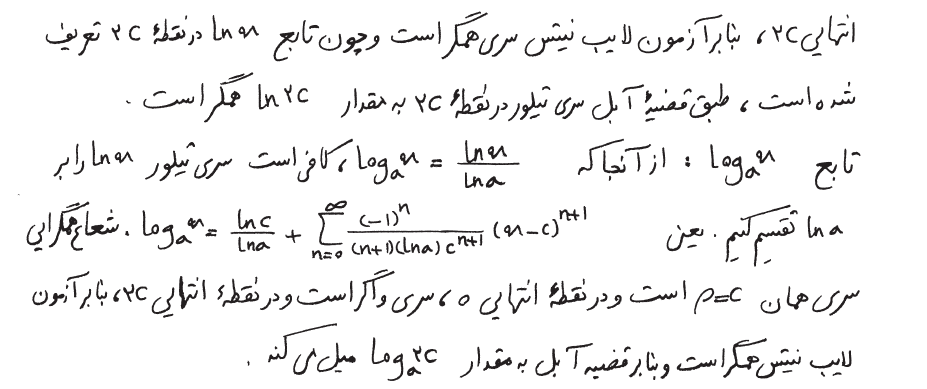 انتهایی ۲C، بنابر آزمون لایب نیتس سری همگرا است و چون تابع ln x در نقطهٔ ۲C تعریف
شده است، طبق قضیهٔ آبل سری تیلور در نقطهٔ ۲C به مقدار ln ۲C همگرا است.
تابع logₐx : از آنجا که logₐx = ln x / ln a، کافی است سری تیلور ln x را بر
ln a تقسیم کنیم. یعنی logₐx = ln c / ln a + ∑_{n=0}^{∞} (-1)^n / ((n+1)(ln a) c^{n+1}) (x-c)^{n+1}. شعاع همگرایی
سری همان ρ=c است و در نقطهٔ انتهایی ۰، سری واگرا است و در نقطهٔ انتهایی ۲C، بنابر آزمون
لایب نیتس همگرا است و بنابر قضیه آبل به مقدار logₐ۲C میل می کند.